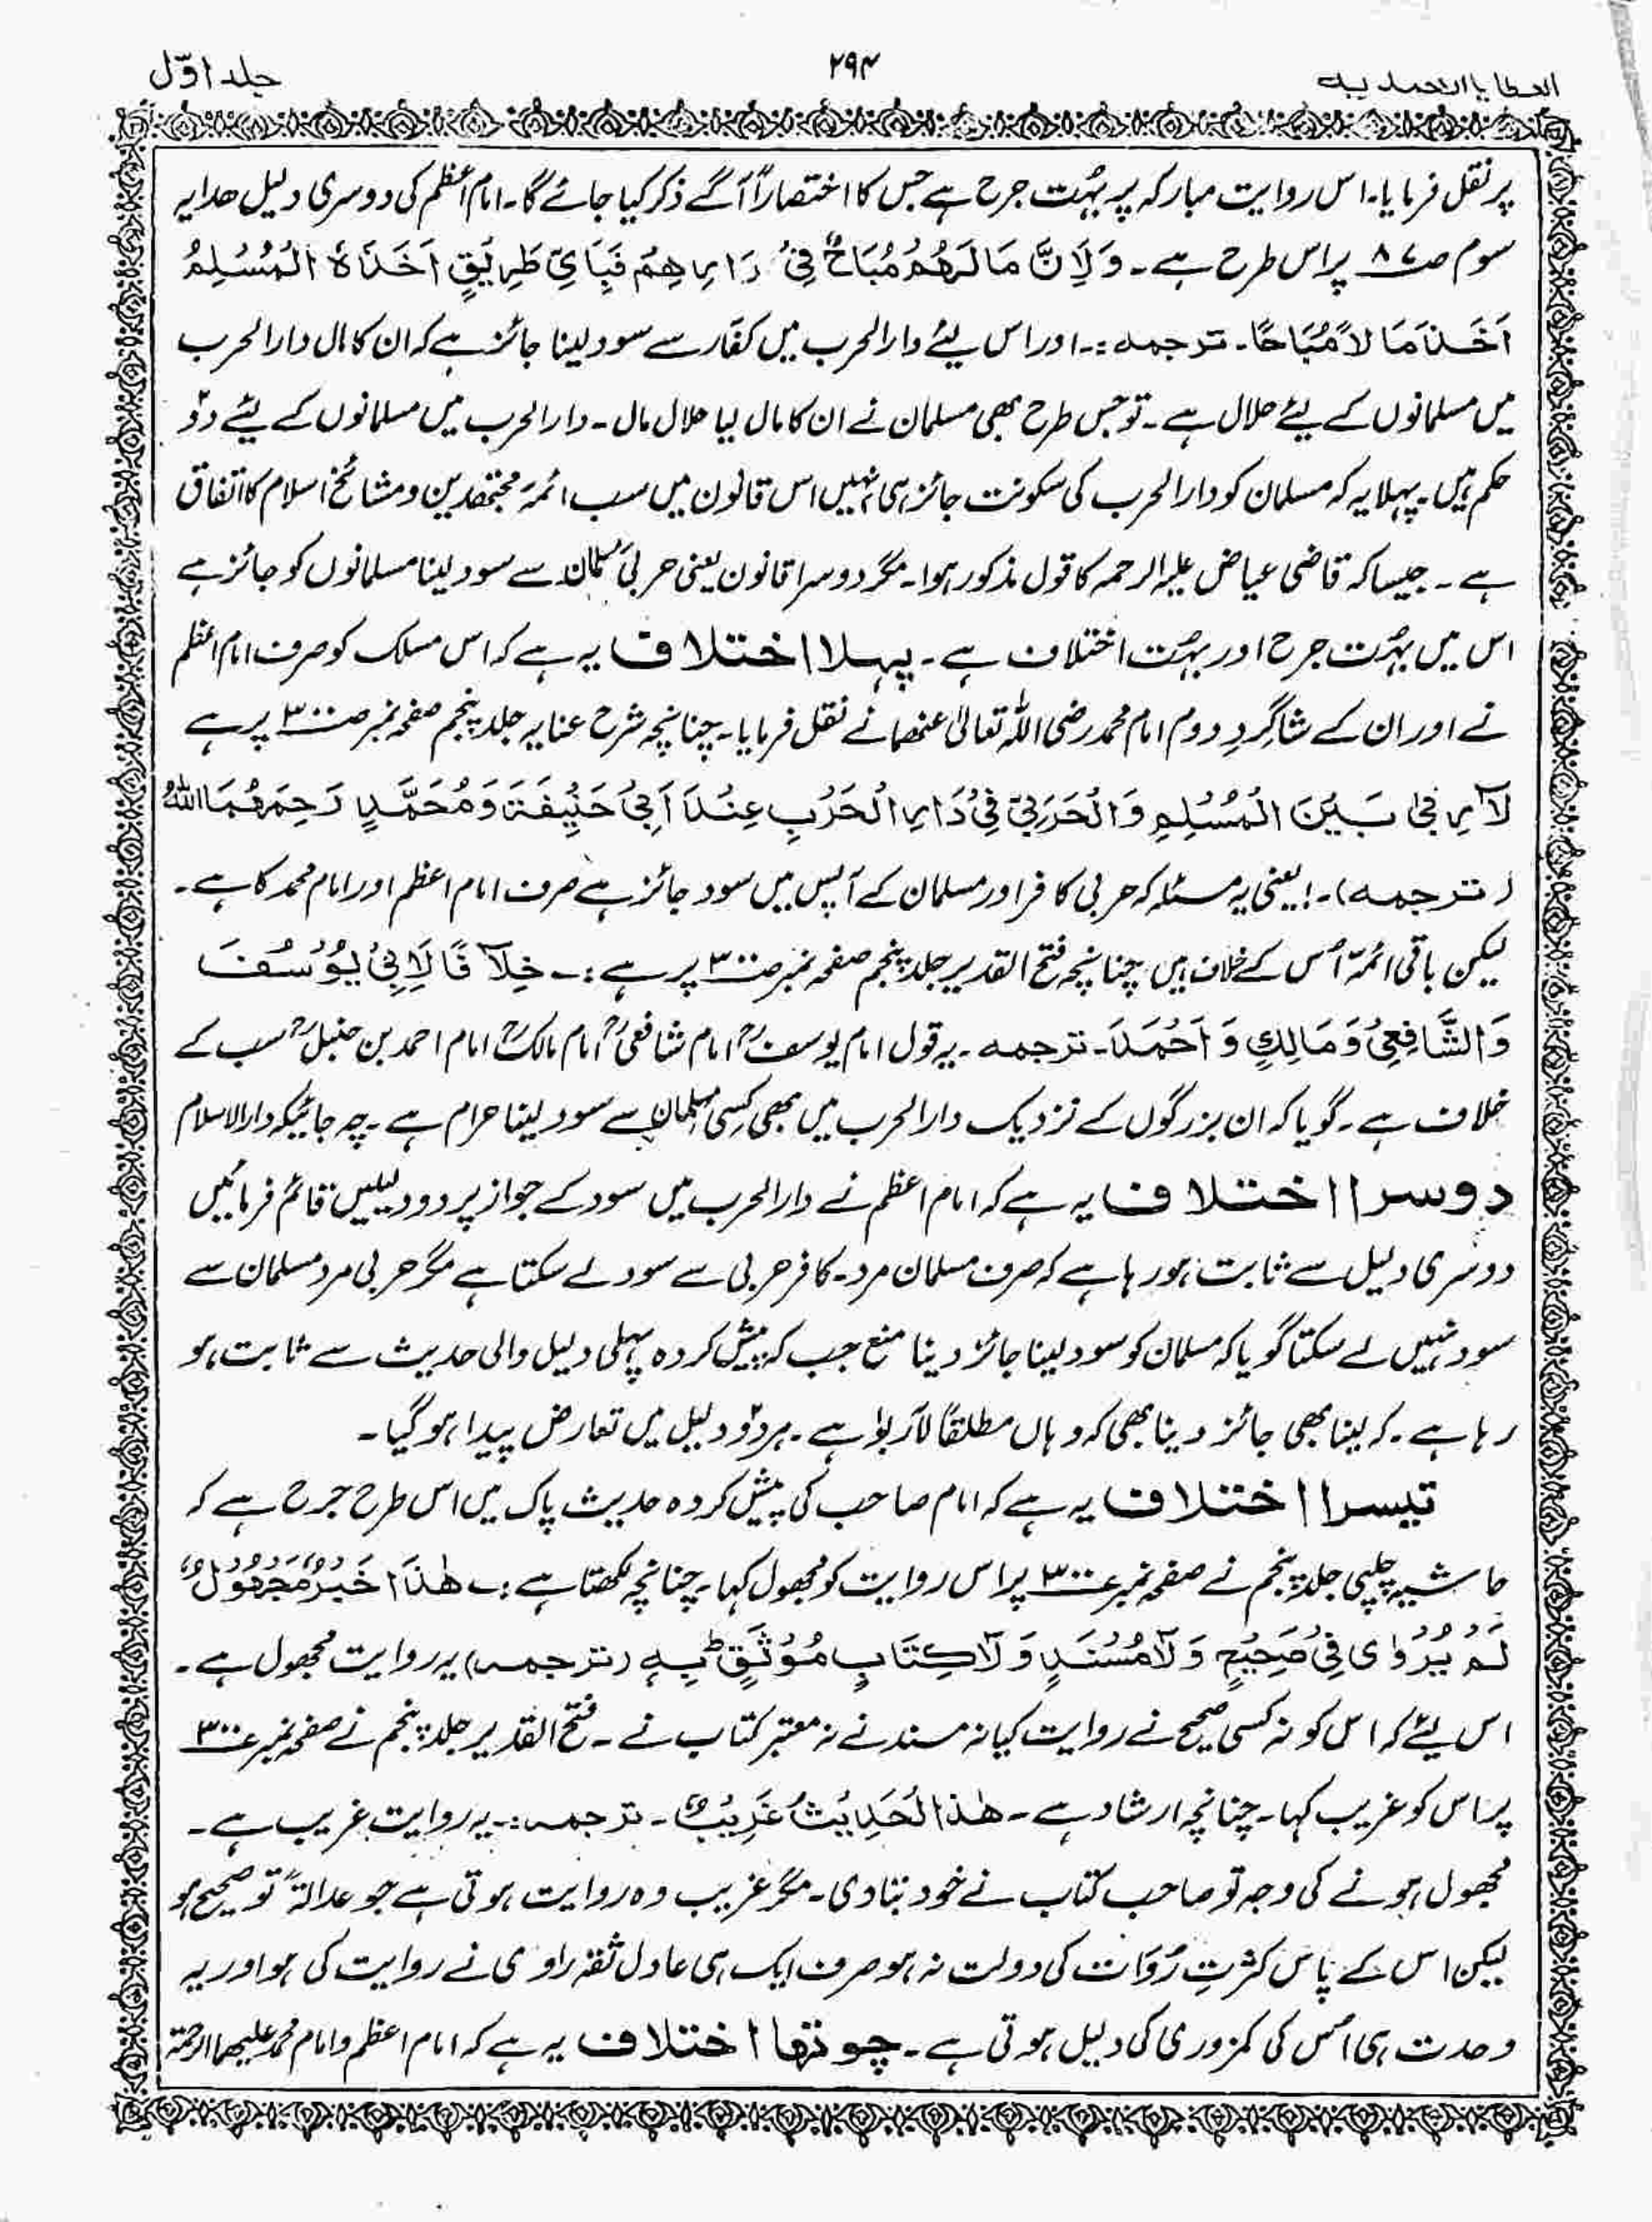 العطایا الاحمدیہ
۲۹۴
جلد اوّل
پر نقل فرمایا۔ اس روایت مبارکہ پر بہُت جرح ہے جس کا اختصاراً آگے ذکر کیا جائے گا۔ امام اعظم کی دوسری دلیل ھدایہ
سوم صـ۸۷ پر اس طرح ہے۔ وَلِاَنَّ مَالَهُمْ مُبَاحٌ فِیْ دَارِهِمْ فَبِاَیِّ طَرِیْقٍ اَخَذَہُ الْمُسْلِمُ
اَخَذَ مَالًا مُّبَاحًا۔ ترجمہ :۔ اور اس لیٔے دارالحرب میں کفّار سے سود لینا جائز ہے کہ ان کا مال دارالحرب
میں مسلمانوں کے لیٔے حلال ہے۔ تو جس طرح بھی مسلمان نے ان کا مال لیا حلال مال۔ دارالحرب میں مسلمانوں کے لیٔے دوّ
حکم ہیں۔ پہلا یہ کہ مسلمان کو دارالحرب کی سکونت جائز ہی نہیں اس قانون میں سب ائمۂ مجتھدین و مشائخ اسلام کا اتفاق
ہے۔ جیسا کہ قاضی عیاض علیہ الرحمہ کا قول مذکور ہوا۔ مگر دوسرا قانون یعنی حربی سے سود لینا مسلمانوں کو جائز ہے
اس میں بہُت جرح اور بہُت اختلاف ہے۔ پہلا اختلاف یہ ہے کہ اس مسلک کو صرف امام اعظم
نے اور ان کے شاگردِ دوم امام محمد رضی اللہ تعالیٰ عنھما نے نقل فرمایا۔ چنانچہ شرح عنایہ جلد پنجم صفحہ نمبر صـ۳۰۰ پر ہے
لَا رِبٰی بَیْنَ الْمُسْلِمِ وَالْحَرَبِیِّ فِیْ دَارِ الْحَرْبِ عِنْدَ اَبِیْ حَنِیْفَةَ وَمُحَمَّدٍ رَحِمَهُمَا اللہُ
(ترجمہ)۔ یعنی یہ مسئلہ کہ حربی کافر اور مسلمان کے آپس میں سود جائز ہے صرف امام اعظم اور امام محمد کا ہے۔
لیکن باقی ائمّہ اُس کے خلاف ہیں چنانچہ فتح القدیر جلد پنجم صفحہ نمبر صـ۳۰۰ پر ہے :۔ خِلَافًا لِاَبِیْ یُوْسُفَ
وَالشَّافِعِیْ وَمَالِكٍ وَ اَحْمَدَ۔ ترجمہ۔ یہ قول امام یوسفؒ امام شافعیؒ امام مالکؒ امام احمد بن حنبلؒ سب کے
خلاف ہے۔ گویا کہ ان بزرگوں کے نزدیک دارالحرب میں بھی کسی مسلمان سے سود لینا حرام ہے۔ چہ جائیکہ دارالاسلام
دوسرا اختلاف یہ ہے کہ امام اعظم نے دارالحرب میں سود کے جواز پر دو دلیلیں قائم فرمائیں
دوسری دلیل سے ثابت ہو رہا ہے کہ صرف مسلمان مرد۔ کافر حربی سے سود لے سکتا ہے مگر حربی مرد مسلمان سے
سود نہیں لے سکتا گویا کہ مسلمان کو سود لینا جائز دینا منع جب کہ پیش کردہ پہلی دلیل والی حدیث سے ثابت ہو
رہا ہے۔ کہ لینا بھی جائز دینا بھی کہ وہاں مطلقًا لَا رِبٰوا ہے۔ ہر دوّ دلیل میں تعارض پیدا ہو گیا۔
تیسرا اختلاف یہ ہے کہ امام صاحب کی پیش کردہ حدیث پاک میں اس طرح جرح ہے کہ
حاشیہ چلپی جلد پنجم نے صفحہ نمبر صـ۳۰۰ پر اس روایت کو مجھول کہا۔ چنانچہ لکھتا ہے :۔ ھٰذَا خَبْرٌ مَجْهُوْلٌ
لَمْ یُرْوٰی فِیْ صَحِیْحٍ وَلَا مُسْنَدٍ وَلَا كِتَابٍ مُوْثَقٍ بِهٖ (ترجمہ) یہ روایت مجھول ہے۔
اس لیٔے کہ اس کو نہ کسی صحیح نے روایت کیا نہ مسند نے نہ معتبر کتاب نے۔ فتح القدیر جلد پنجم نے صفحہ نمبر صـ۳۰۰
پر اس کو غریب کہا۔ چنانچہ ارشاد ہے۔ ھٰذَا لْحَدِیْثُ غَرِیْبٌ۔ ترجمہ :۔ یہ روایت غریب ہے۔
مجھول ہونے کی وجہ تو صاحب کتاب نے خود بتا دی۔ مگر غریب وہ روایت ہوتی ہے جو عدالۃً تو صحیح ہو
لیکن اس کے پاس کثرتِ رُوَات کی دولت نہ ہو صرف ایک ہی عادل ثقہ راوی نے روایت کی ہو اور یہ
وحدت ہی اُس کی کمزوری کی دلیل ہوتی ہے۔ چوتھا اختلاف یہ ہے کہ امام اعظم و امام محمد علیھما الرحمۃ